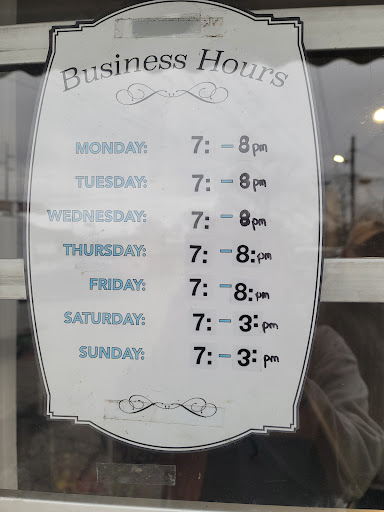 Business Hours
MONDAY: 7: - 8pm
TUESDAY: 7: - 8pm
WEDNESDAY: 7: - 8pm
THURSDAY: 7: - 8: pm
FRIDAY: 7: - 8: pm
SATURDAY: 7: - 3: pm
SUNDAY: 7: - 3: pm